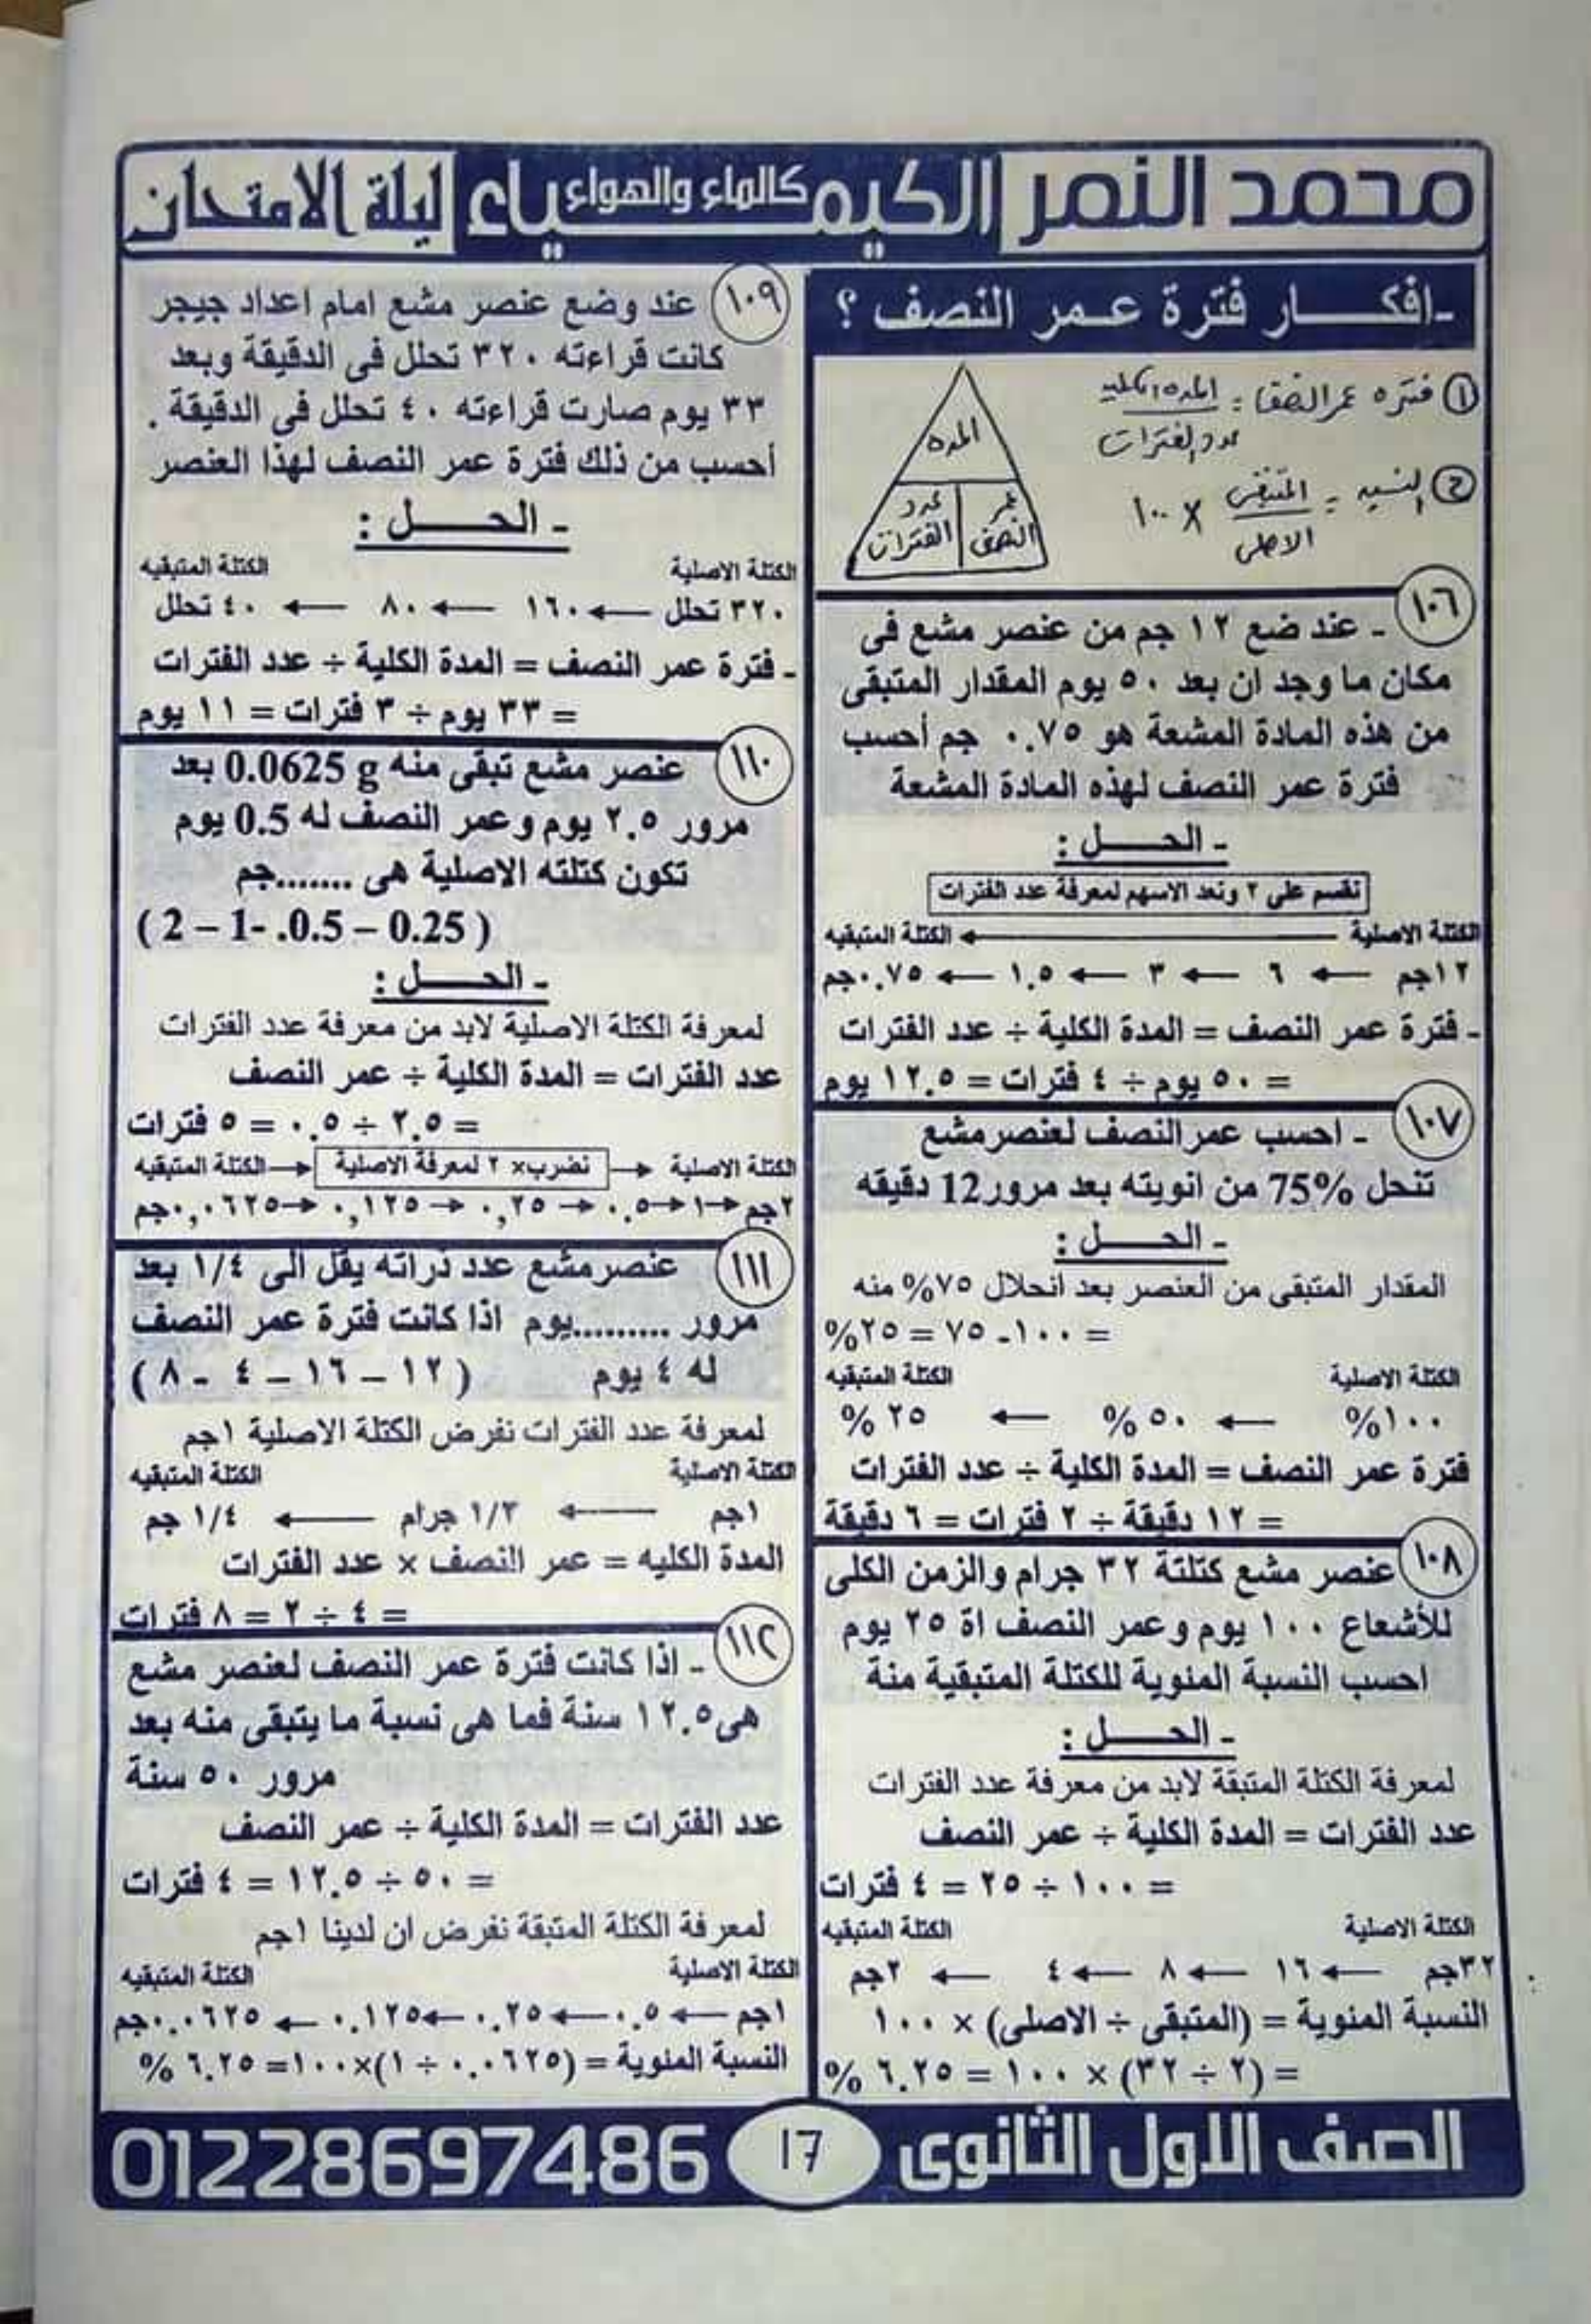 محمد النمر الكيمياء كالماء والهواء ليلة الامتحان
-افكـــــار فترة عـمر النصف ؟
① فتره عمر النصف = المده الكليه
عدد الفترات
② النسبه = المتبقى × ١٠٠
الاصلى
المده
عمر النصف
عدد الفترات
١٠٦ - عند ضع ١٢ جم من عنصر مشع فى
مكان ما وجد ان بعد ٥٠ يوم المقدار المتبقى
من هذه المادة المشعة هو ٠.٧٥ جم أحسب
فترة عمر النصف لهذه المادة المشعة
- الحـــــل :
نقسم على ٢ ونعد الاسهم لمعرفة عدد الفترات
الكتلة الاصلية ← الكتلة المتبقيه
١٢جم ← ٦ ← ٣ ← ١.٥ ← ٠.٧٥جم
- فترة عمر النصف = المدة الكلية ÷ عدد الفترات
= ٥٠ يوم ÷ ٤ فترات = ١٢.٥ يوم
١٠٧ - احسب عمر النصف لعنصر مشع
تنحل 75% من انويته بعد مرور 12 دقيقه
- الحـــــل :
المقدار المتبقى من العنصر بعد انحلال ٧٥% منه
= ١٠٠ - ٧٥ = ٢٥%
الكتلة الاصلية الكتلة المتبقيه
١٠٠% ← ٥٠% ← ٢٥ %
فترة عمر النصف = المدة الكلية ÷ عدد الفترات
= ١٢ دقيقة ÷ ٢ فترات = ٦ دقيقة
١٠٨ عنصر مشع كتلتة ٣٢ جرام والزمن الكلى
للأشعاع ١٠٠ يوم وعمر النصف اة ٢٥ يوم
احسب النسبة المئوية للكتلة المتبقية منة
- الحـــــل :
لمعرفة الكتلة المتبقة لابد من معرفة عدد الفترات
عدد الفترات = المدة الكلية ÷ عمر النصف
= ١٠٠ ÷ ٢٥ = ٤ فترات
الكتلة الاصلية الكتلة المتبقيه
٣٢جم ← ١٦ ← ٨ ← ٤ ← ٢جم
النسبة المئوية = (المتبقى ÷ الاصلى) × ١٠٠
= (٢ ÷ ٣٢) × ١٠٠ = ٦.٢٥ %
١٠٩ عند وضع عنصر مشع امام اعداد جيجر
كانت قراءته ٣٢٠ تحلل فى الدقيقة وبعد
٣٣ يوم صارت قراءته ٤٠ تحلل فى الدقيقة .
أحسب من ذلك فترة عمر النصف لهذا العنصر
- الحـــــل :
الكتلة الاصلية الكتلة المتبقيه
٣٢٠ تحلل ← ١٦٠ ← ٨٠ ← ٤٠ تحلل
- فترة عمر النصف = المدة الكلية ÷ عدد الفترات
= ٣٣ يوم ÷ ٣ فترات = ١١ يوم
١١٠ عنصر مشع تبقى منه 0.0625 g بعد
مرور ٢.٥ يوم وعمر النصف له 0.5 يوم
تكون كتلته الاصلية هى .......جم
( 2 – 1- .0.5 – 0.25 )
- الحـــــل :
لمعرفة الكتلة الاصلية لابد من معرفة عدد الفترات
عدد الفترات = المدة الكلية ÷ عمر النصف
= ٢.٥ ÷ ٠.٥ = ٥ فترات
الكتلة الاصلية → نضرب× ٢ لمعرفة الاصلية → الكتلة المتبقيه
٢جم→١→٠.٥→٠,٢٥→٠,١٢٥→٠,٠٦٢٥جم
١١١ عنصر مشع عدد ذراته يقل الى ١/٤ بعد
مرور .........يوم اذا كانت فترة عمر النصف
له ٤ يوم ( ١٢ – ١٦ – ٤ - ٨ )
لمعرفة عدد الفترات نفرض الكتلة الاصلية ١جم
الكتلة الاصلية الكتلة المتبقيه
١جم ← ١/٢ جرام ← ١/٤ جم
المدة الكليه = عمر النصف × عدد الفترات
= ٤ ÷ ٢ = ٨ فترات
١١٢ - اذا كانت فترة عمر النصف لعنصر مشع
هى١٢.٥ سنة فما هى نسبة ما يتبقى منه بعد
مرور ٥٠ سنة
عدد الفترات = المدة الكلية ÷ عمر النصف
= ٥٠ ÷ ١٢.٥ = ٤ فترات
لمعرفة الكتلة المتبقة نفرض ان لدينا ١جم
الكتلة الاصلية الكتلة المتبقيه
١جم ← ٠.٥ ← ٠.٢٥ ← ٠.١٢٥ ← ٠.٠٦٢٥جم
النسبة المئوية = (٠.٠٦٢٥ ÷ ١)×١٠٠= ٦.٢٥ %
الصف الاول الثانوى 17 01228697486